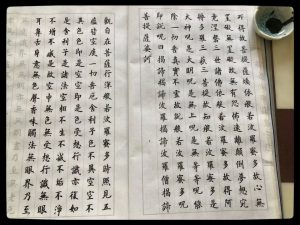 所得故菩提薩埵依般若波羅蜜多故心無
罣礙無罣礙故無有恐怖遠離顛倒夢想究
竟涅槃三世諸佛依般若波羅蜜多故得阿
耨多羅三藐三菩提故知般若波羅蜜多是
大神呪是大明呪是無上呪是無等等呪能
除一切苦真實不虛故說般若波羅蜜多呪
即說呪曰揭諦揭諦波羅揭諦波羅僧揭諦
菩提薩婆訶
觀自在菩薩行深般若波羅蜜多時照見五
蘊皆空度一切苦厄舍利子色不異空空不
異色色即是空空即是色受想行識亦復如
是舍利子是諸法空相不生不滅不垢不淨
不增不減是故空中無色無受想行識無眼
耳鼻舌身意無色聲香味觸法無眼界乃至